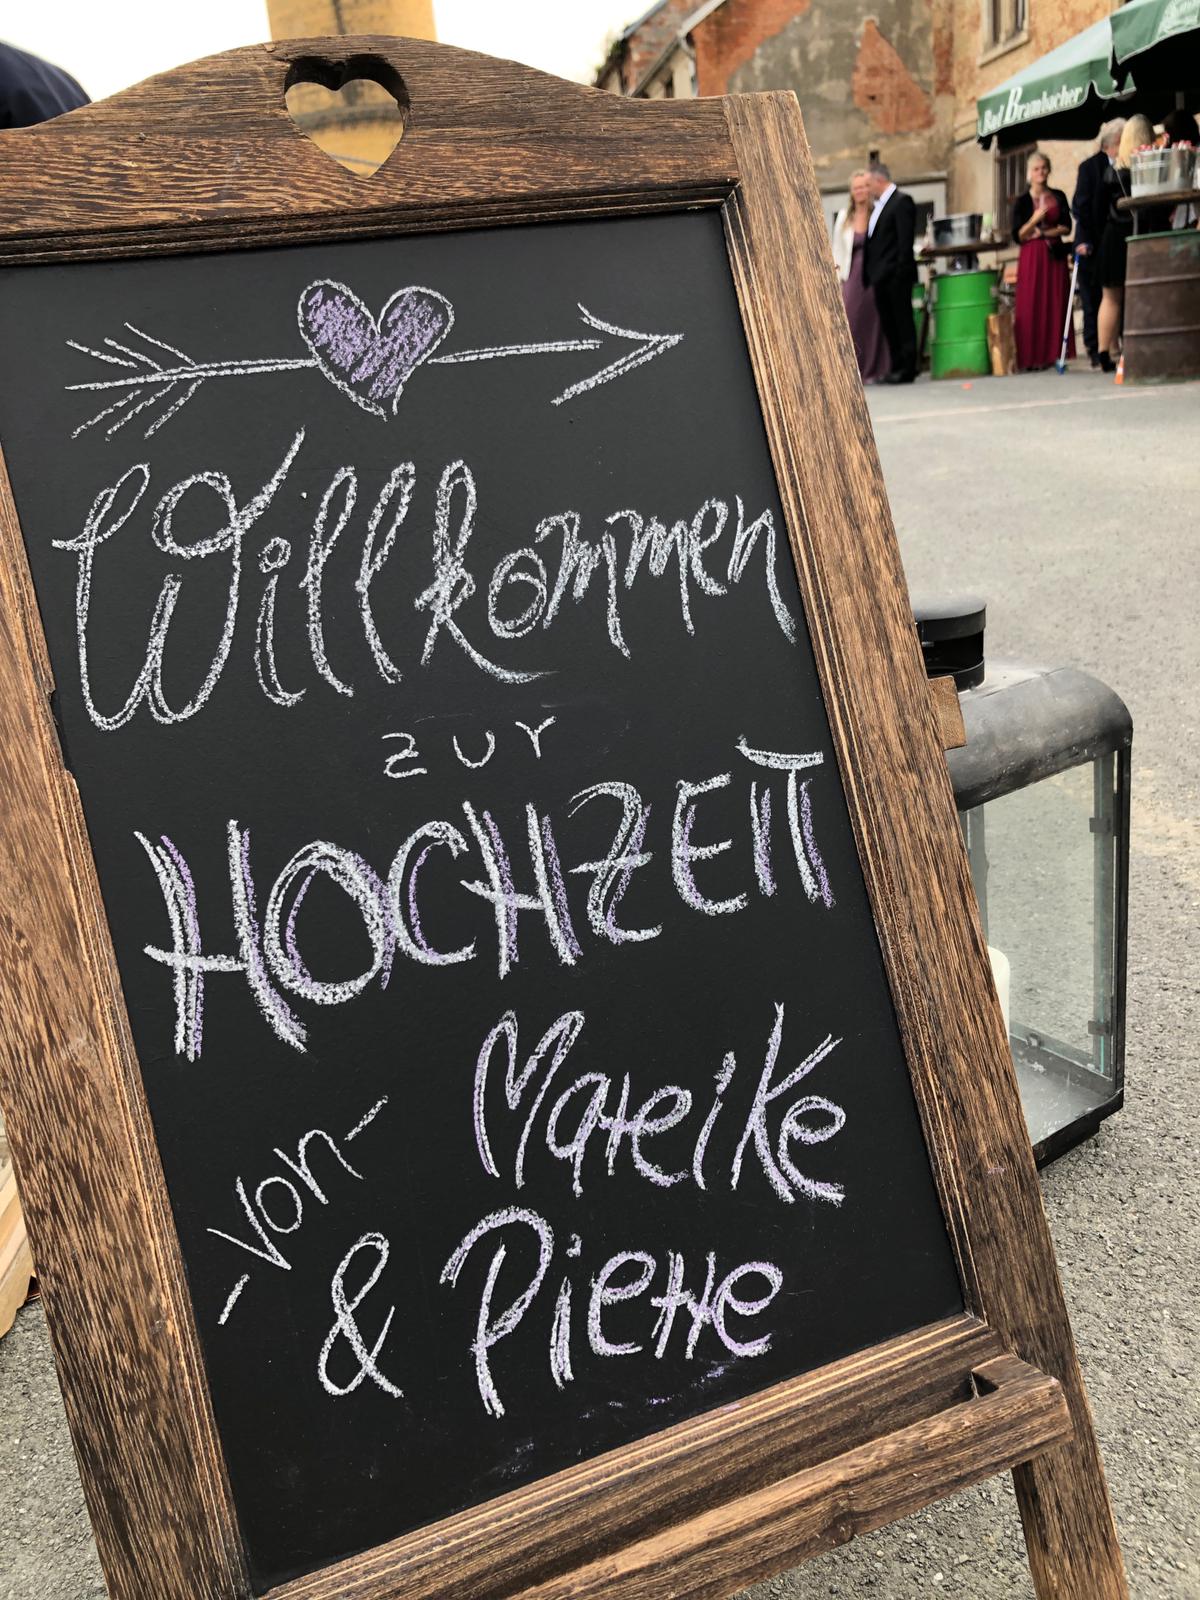 Willkommen
zur
HOCHZEIT
-von-
Mareike
& Pierre
Bad Brambacher